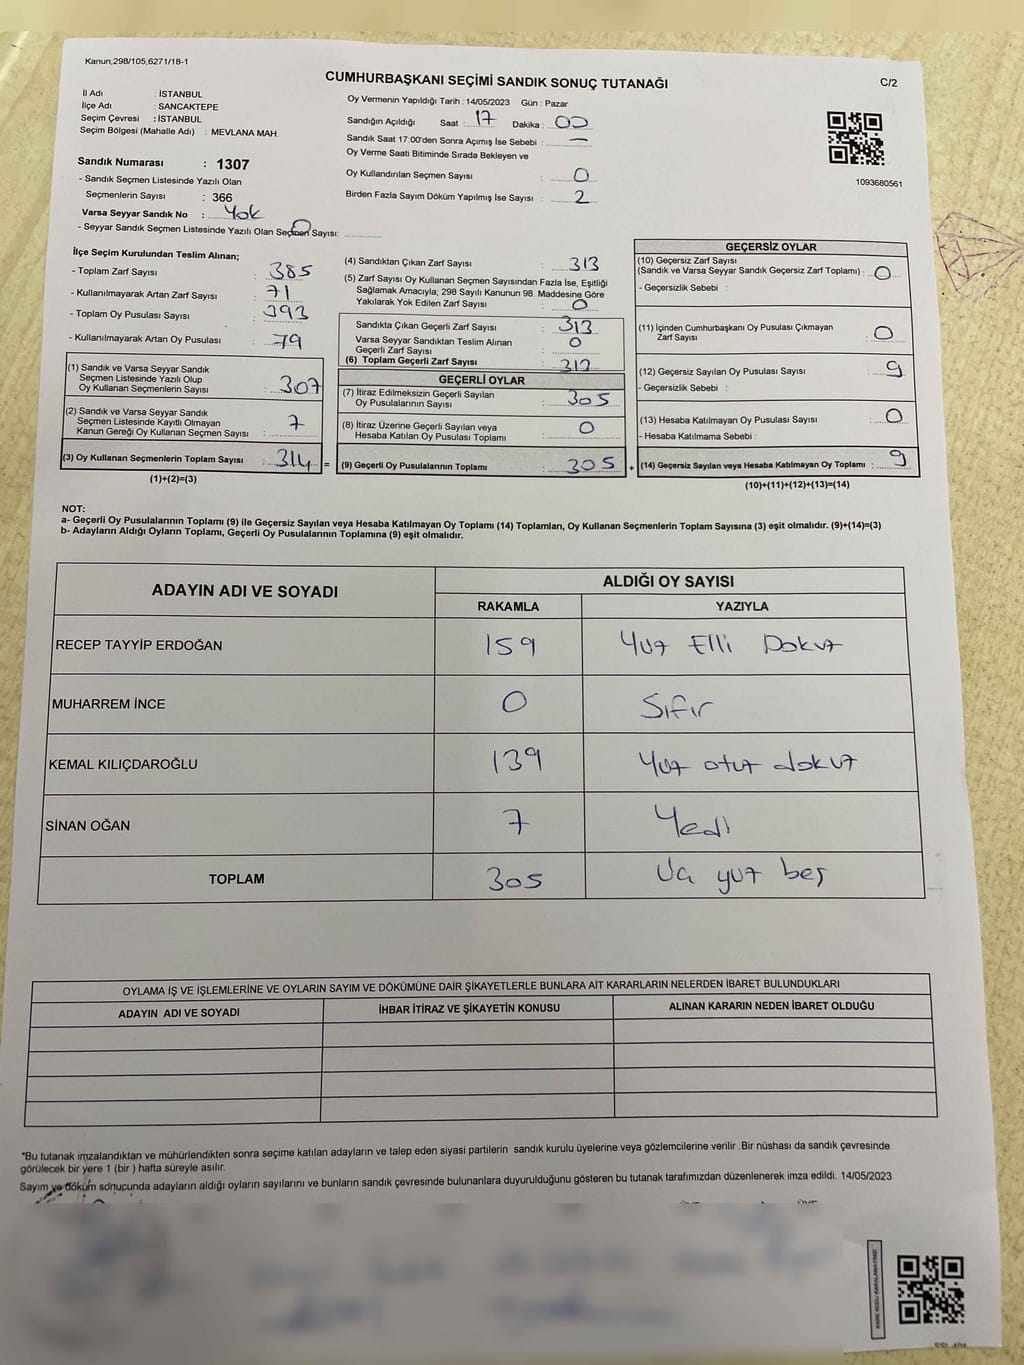 Kanun;298/105,6271/18-1
CUMHURBAŞKANI SEÇİMİ SANDIK SONUÇ TUTANAĞI
C/2
İl Adı : İSTANBUL
İlçe Adı : SANCAKTEPE
Seçim Çevresi : İSTANBUL
Seçim Bölgesi (Mahalle Adı) : MEVLANA MAH.
Sandık Numarası : 1307
- Sandık Seçmen Listesinde Yazılı Olan
Seçmenlerin Sayısı : 366
Varsa Seyyar Sandık No : Yok
- Seyyar Sandık Seçmen Listesinde Yazılı Olan Seçmen Sayısı: 0
Oy Vermenin Yapıldığı Tarih : 14/05/2023 Gün : Pazar
Sandığın Açıldığı Saat : 17 Dakika : 00
Sandık Saat 17:00'den Sonra Açımış İse Sebebi : —
Oy Verme Saati Bitiminde Sırada Bekleyen ve
Oy Kullandırılan Seçmen Sayısı : 0
Birden Fazla Sayım Döküm Yapılmış İse Sayısı : 2
1093680561
İlçe Seçim Kurulundan Teslim Alınan;
- Toplam Zarf Sayısı : 385
- Kullanılmayarak Artan Zarf Sayısı : 71
- Toplam Oy Pusulası Sayısı : 393
- Kullanılmayarak Artan Oy Pusulası : 79
(1) Sandık ve Varsa Seyyar Sandık
Seçmen Listesinde Yazılı Olup
Oy Kullanan Seçmenlerin Sayısı : 307
(2) Sandık ve Varsa Seyyar Sandık
Seçmen Listesinde Kayıtlı Olmayan
Kanun Gereği Oy Kullanan Seçmen Sayısı : 7
(3) Oy Kullanan Seçmenlerin Toplam Sayısı : 314 =
(1)+(2)=(3)
(4) Sandıktan Çıkan Zarf Sayısı : 313
(5) Zarf Sayısı Oy Kullanan Seçmen Sayısından Fazla İse, Eşitliği
Sağlamak Amacıyla; 298 Sayılı Kanunun 98. Maddesine Göre
Yakılarak Yok Edilen Zarf Sayısı : 0
Sandıkta Çıkan Geçerli Zarf Sayısı : 313
Varsa Seyyar Sandıktan Teslim Alınan
Geçerli Zarf Sayısı : 0
(6) Toplam Geçerli Zarf Sayısı : 313
GEÇERLİ OYLAR
(7) İtiraz Edilmeksizin Geçerli Sayılan
Oy Pusulalarının Sayısı : 305
(8) İtiraz Üzerine Geçerli Sayılan veya
Hesaba Katılan Oy Pusulası Toplamı : 0
(9) Geçerli Oy Pusulalarının Toplamı : 305 +
GEÇERSİZ OYLAR
(10) Geçersiz Zarf Sayısı
(Sandık ve Varsa Seyyar Sandık Geçersiz Zarf Toplamı) : 0
- Geçersizlik Sebebi :
(11) İçinden Cumhurbaşkanı Oy Pusulası Çıkmayan
Zarf Sayısı : 0
(12) Geçersiz Sayılan Oy Pusulası Sayısı : 9
- Geçersizlik Sebebi :
(13) Hesaba Katılmayan Oy Pusulası Sayısı : 0
- Hesaba Katılmama Sebebi :
(14) Geçersiz Sayılan veya Hesaba Katılmayan Oy Toplamı : 9
(10)+(11)+(12)+(13)=(14)
NOT:
a- Geçerli Oy Pusulalarının Toplamı (9) ile Geçersiz Sayılan veya Hesaba Katılmayan Oy Toplamı (14) Toplamları, Oy Kullanan Seçmenlerin Toplam Sayısına (3) eşit olmalıdır. (9)+(14)=(3)
b- Adayların Aldığı Oyların Toplamı, Geçerli Oy Pusulalarının Toplamına (9) eşit olmalıdır.
ADAYIN ADI VE SOYADI ALDIĞI OY SAYISI
RAKAMLA YAZIYLA
RECEP TAYYİP ERDOĞAN 159 Yüz Elli Dokuz
MUHARREM İNCE 0 Sıfır
KEMAL KILIÇDAROĞLU 139 Yüz otuz dokuz
SİNAN OĞAN 7 Yedi
TOPLAM 305 Üç yüz beş
OYLAMA İŞ VE İŞLEMLERİNE VE OYLARIN SAYIM VE DÖKÜMÜNE DAİR ŞİKAYETLERLE BUNLARA AİT KARARLARIN NELERDEN İBARET BULUNDUKLARI
ADAYIN ADI VE SOYADI İHBAR İTİRAZ VE ŞİKAYETİN KONUSU ALINAN KARARIN NEDEN İBARET OLDUĞU
*Bu tutanak imzalandıktan ve mühürlendikten sonra seçime katılan adayların ve talep eden siyasi partilerin sandık kurulu üyelerine veya gözlemcilerine verilir .Bir nüshası da sandık çevresinde
görülecek bir yere 1 (bir ) hafta süreyle asılır.
Sayım ve döküm sonucunda adayların aldığı oyların sayılarını ve bunların sandık çevresinde bulunanlara duyurulduğunu gösteren bu tutanak tarafımızdan düzenlenerek imza edildi. 14/05/2023